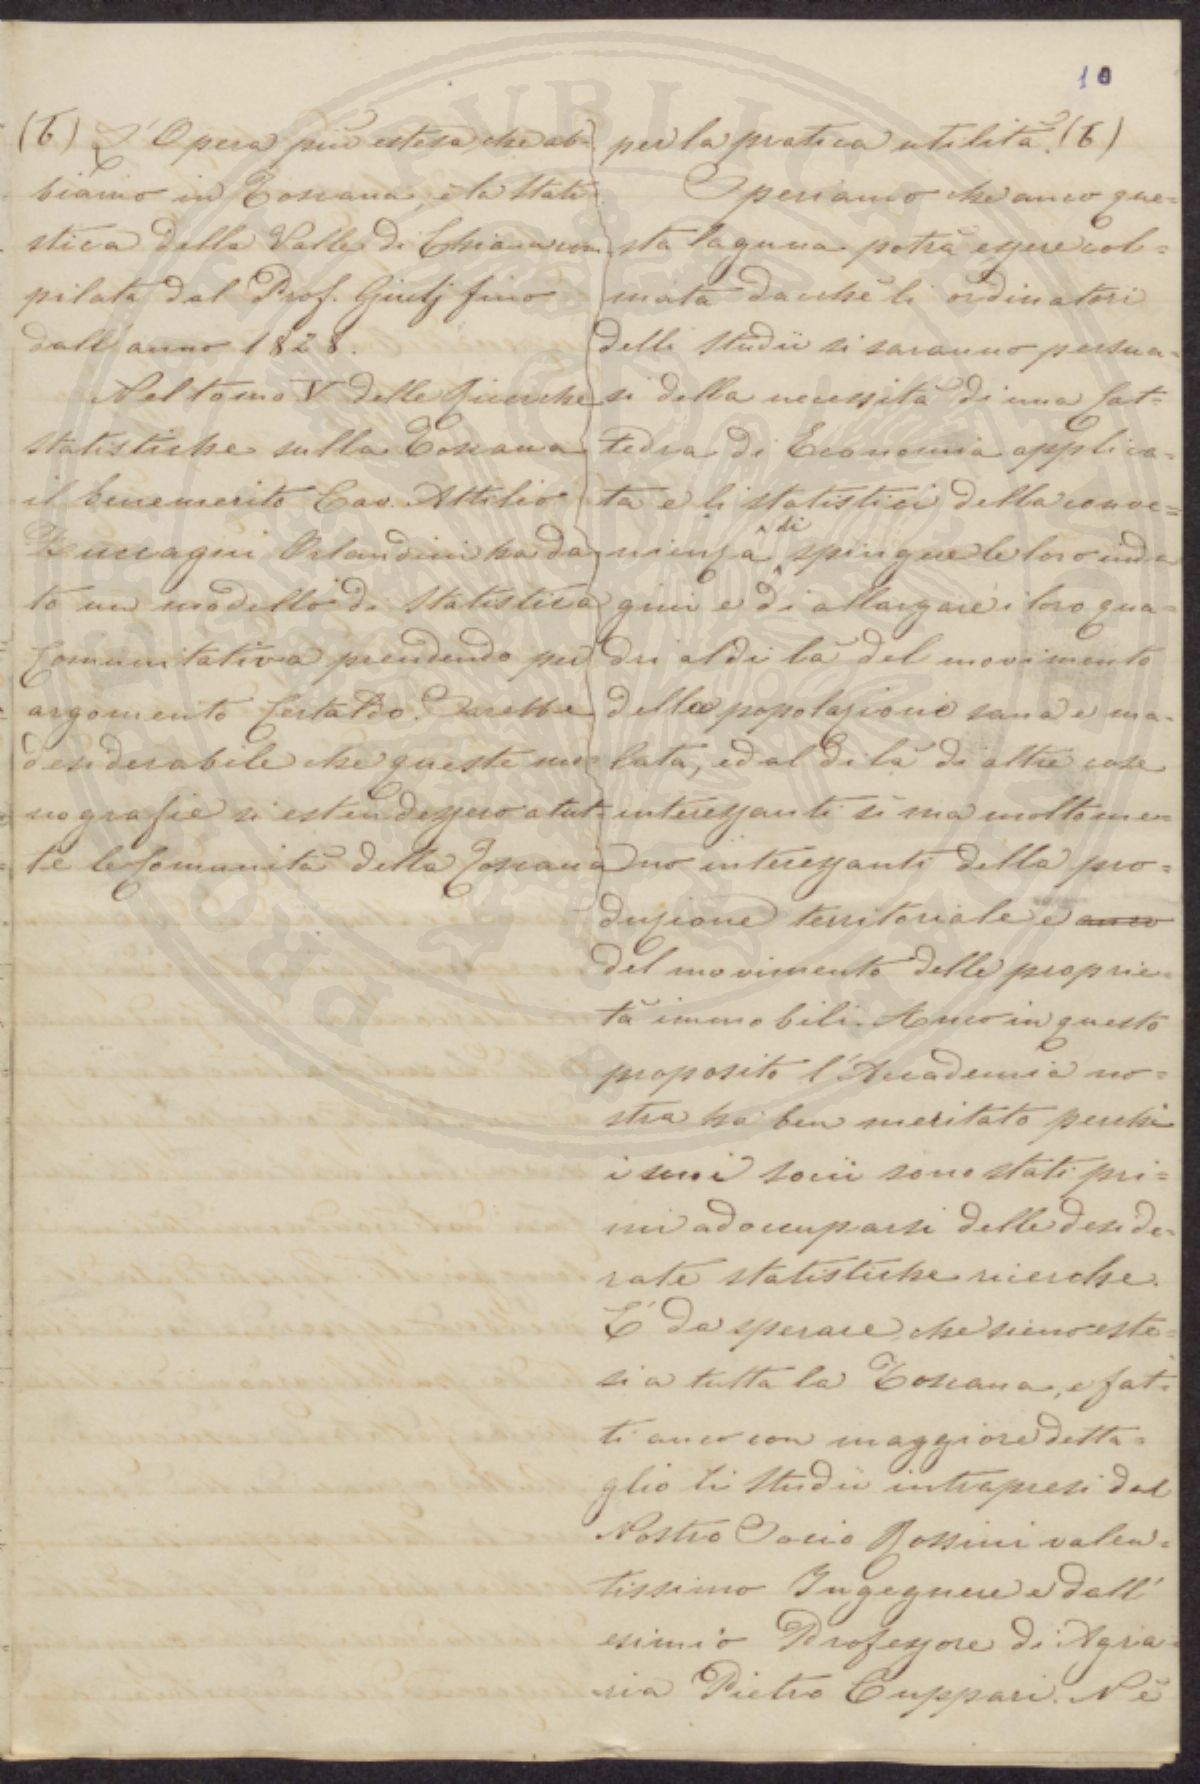 10
(b) L'Opera più estesa che ab=
biamo in Toscana, è la Stati
stica della Valle di Chiana com
pilata dal Prof. Giulj fino
dall'anno 1828.
Nel tomo V delle Ricerche
statistiche sulla Toscana
il benemerito Cav. Attilio
Zuccagni Orlandini ha da
to un modello di Statistica
Comunitativa prendendo per
argomento Certaldo. Sarebbe
desiderabile che queste mo
nografie si estendessero a tut=
te le Comunità della Toscana
per la pratica utilità. (b)
Speriamo che anco que=
sta laguna potrà essere col=
mata dacchè li ordinatori
delli Studii si saranno persua=
si della necessità di una Cat=
tedra di Economia applica=
ta e li statistici della conve=
nienza di spingere le loro inda
gini e di allargare i loro qua=
dri al di là del movimento
della popolazione sana e ma=
lata, ed al di là di altre cose
interessanti sì ma molto me=
no interessanti della pro=
duzione territoriale e anco
del movimento delle proprie=
tà immobili. Anco in questo
proposito l'Accademia no=
stra ha ben meritato perchè
i suoi socii sono stati pri=
mi ad occuparsi delle deside=
rate statistiche ricerche.
E' da sperare che sieno este=
si a tutta la Toscana, e fat=
ti anco con maggiore detta=
glio li Studii intrapresi dal
Nostro Socio Rossini valen=
tissimo Ingegnere e dall'
esimio Professore di Agra=
ria Pietro Cuppari. Nè